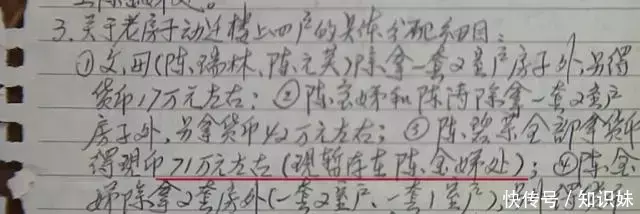 3.关于老房子动迁楼上四户的具体分配细目:
①父、母(陈瑞林、陈元英)除拿一套2室户房子外,另得
货币17万元左右;②陈宏妹和陈涛除拿一套2室户
房子外,另拿货币42万元左右;③陈碧 全部拿货币
得现币71万元左右(现暂存在陈金妹处);④陈金
妹除拿2套房外(一套2室户、一套1室户),
快传号/知识妹